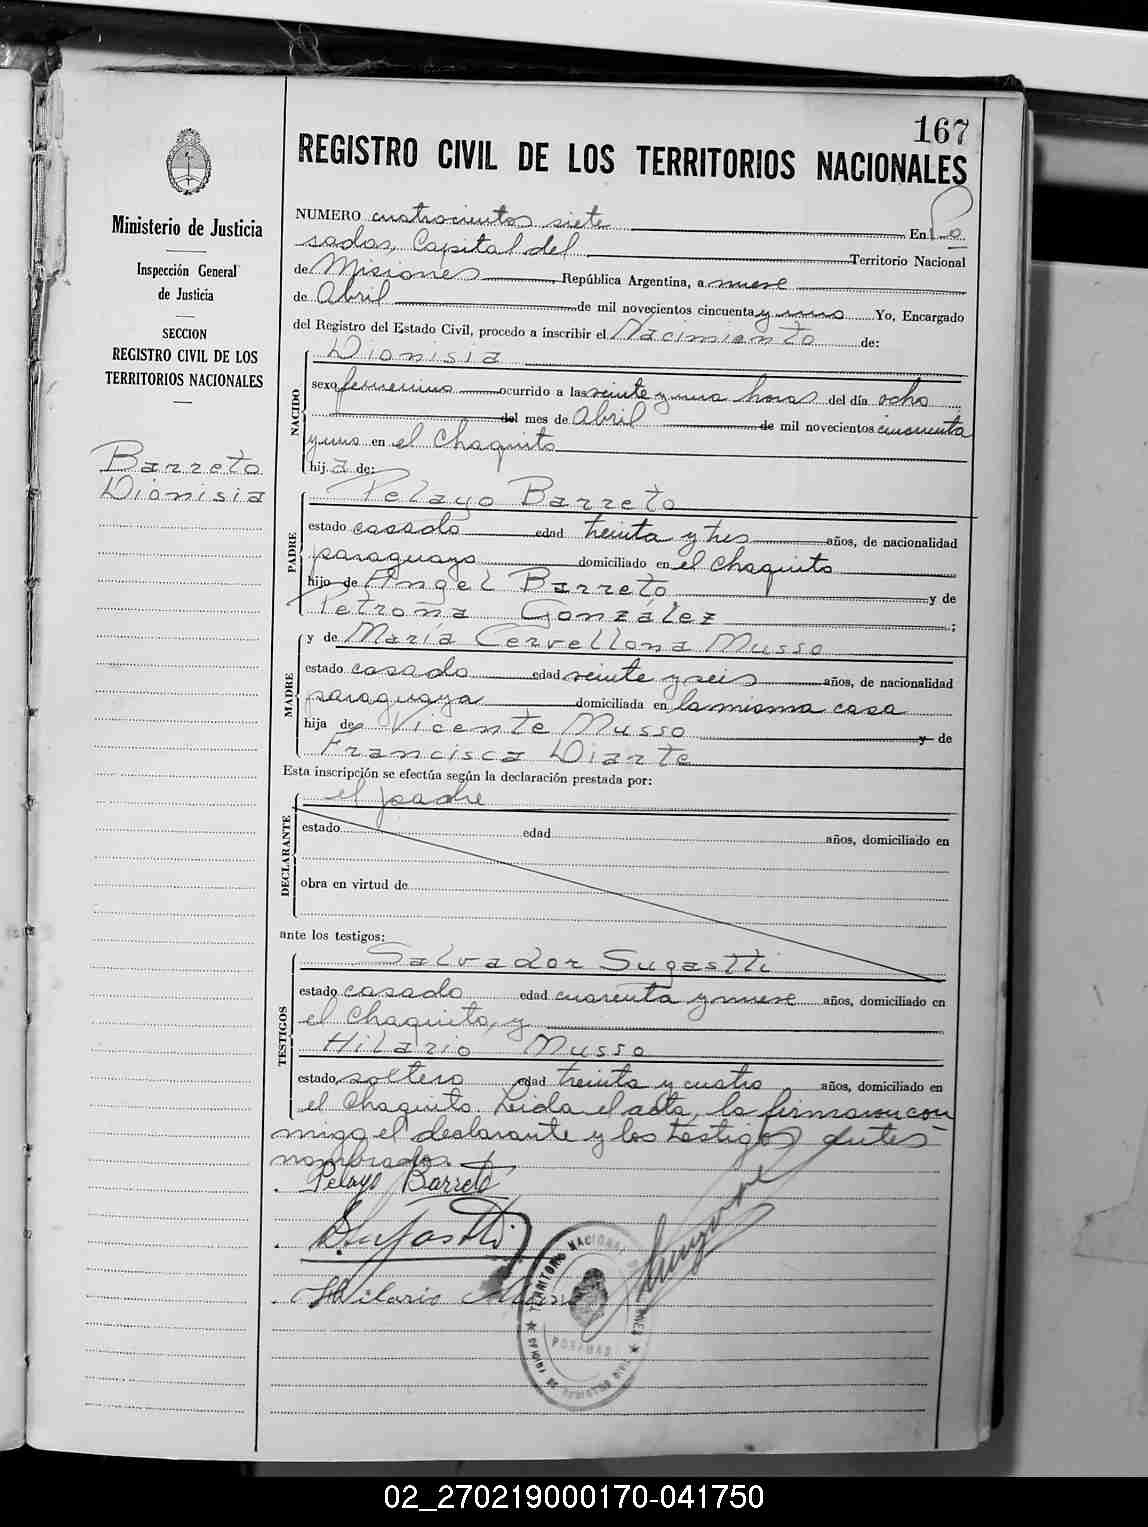 167
REGISTRO CIVIL DE LOS TERRITORIOS NACIONALES
Ministerio de Justicia
Inspección General
de Justicia
SECCION
REGISTRO CIVIL DE LOS
TERRITORIOS NACIONALES
Barreto
Dionisia
NUMERO cuatrocientos siete En Po
sadas, Capital del Territorio Nacional
de Misiones, República Argentina, a nueve
de Abril de mil novecientos cincuenta y uno Yo, Encargado
del Registro del Estado Civil, procedo a inscribir el Nacimiento de:
NACIDO
Dionisia
sexo femenino ocurrido a las veinte y una horas del día ocho
del mes de Abril de mil novecientos cincuenta
y uno en el Chaquito
hija de:
PADRE
Pelayo Barreto
estado casado edad treinta y tres años, de nacionalidad
paraguayo domiciliado en el Chaquito
hijo de Angel Barreto y de
Petrona González ;
MADRE
y de María Cervellona Musso
estado casado edad veinte y seis años, de nacionalidad
paraguaya domiciliada en la misma casa
hija de Vicente Musso y de
Francisca Diarte
Esta inscripción se efectúa según la declaración prestada por:
DECLARANTE
el padre
estado edad años, domiciliado en
obra en virtud de
ante los testigos:
TESTIGOS
Salvador Sugastti
estado casado edad cuarenta y nueve años, domiciliado en
el Chaquito, y
Hilario Musso
estado soltero edad treinta y cuatro años, domiciliado en
el Chaquito. Leida el acta, la firmaron con
migo el declarante y los testigos antes
nombrados.
Pelayo Barreto
S. Sugastti
Hilario Musso
TERRITORIO NACIONAL
POSADAS
02_270219000170-041750